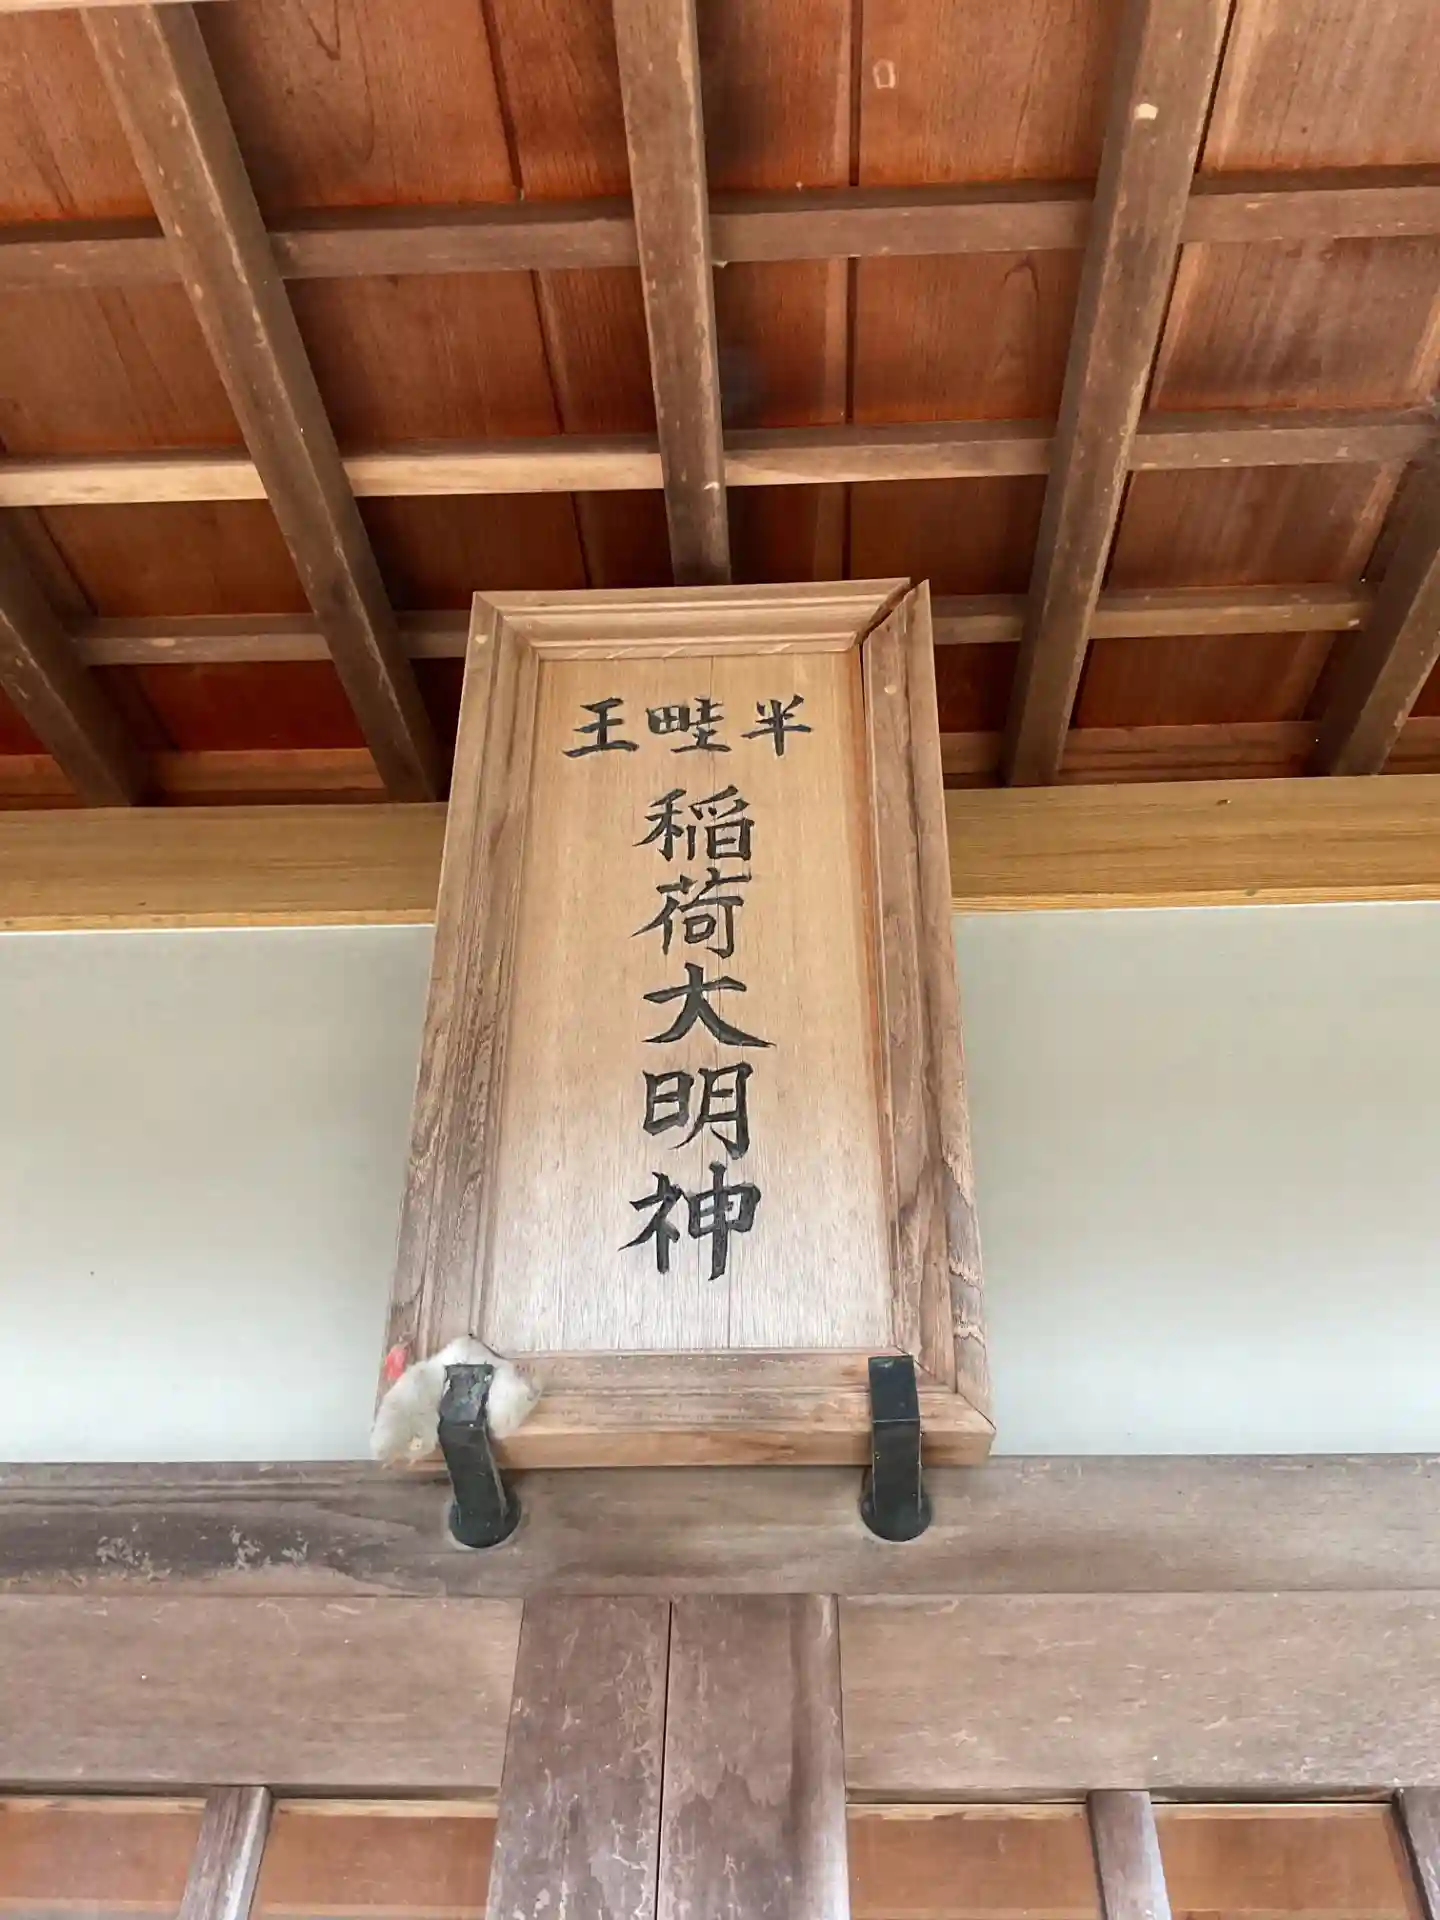 半畦王
稲荷大明神